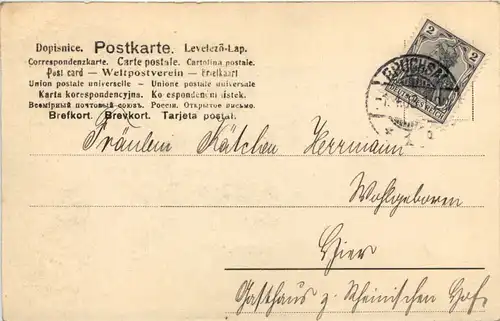 Dopisnice. Postkarte. Levelező-Lap.
Correspondenzkarte. Carte postale. Cartolina postale.
Post card — Weltpostverein — Briefkaart
Union postale universelle — Unione postale universale
Karta korespondencyjna. Ko espondenzni listek.
Всемірный почтовый союзъ. Россія. Открытое письмо.
Brefkort. Brevkort. Tarjeta postal.
2 2
BRUCHSAL
Fräulein Kätchen Herrmann
Wohlgeboren
Hier
Gasthaus z. Rheinischen Hof